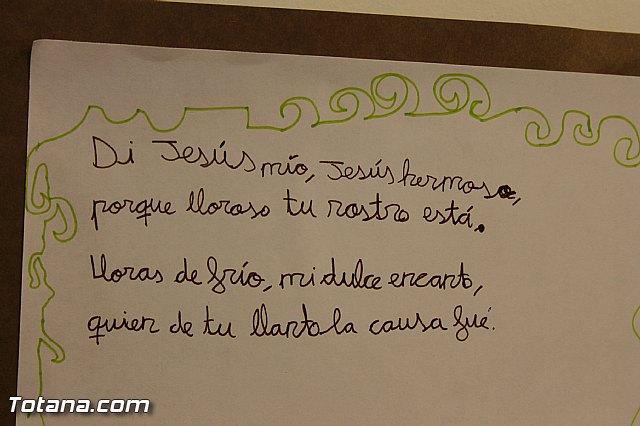 Di Jesús mío, Jesús hermoso,
porque lloroso tu rostro está.
Lloras de frío, mi dulce encanto,
quien de tu llanto la causa fué.
Totana.com